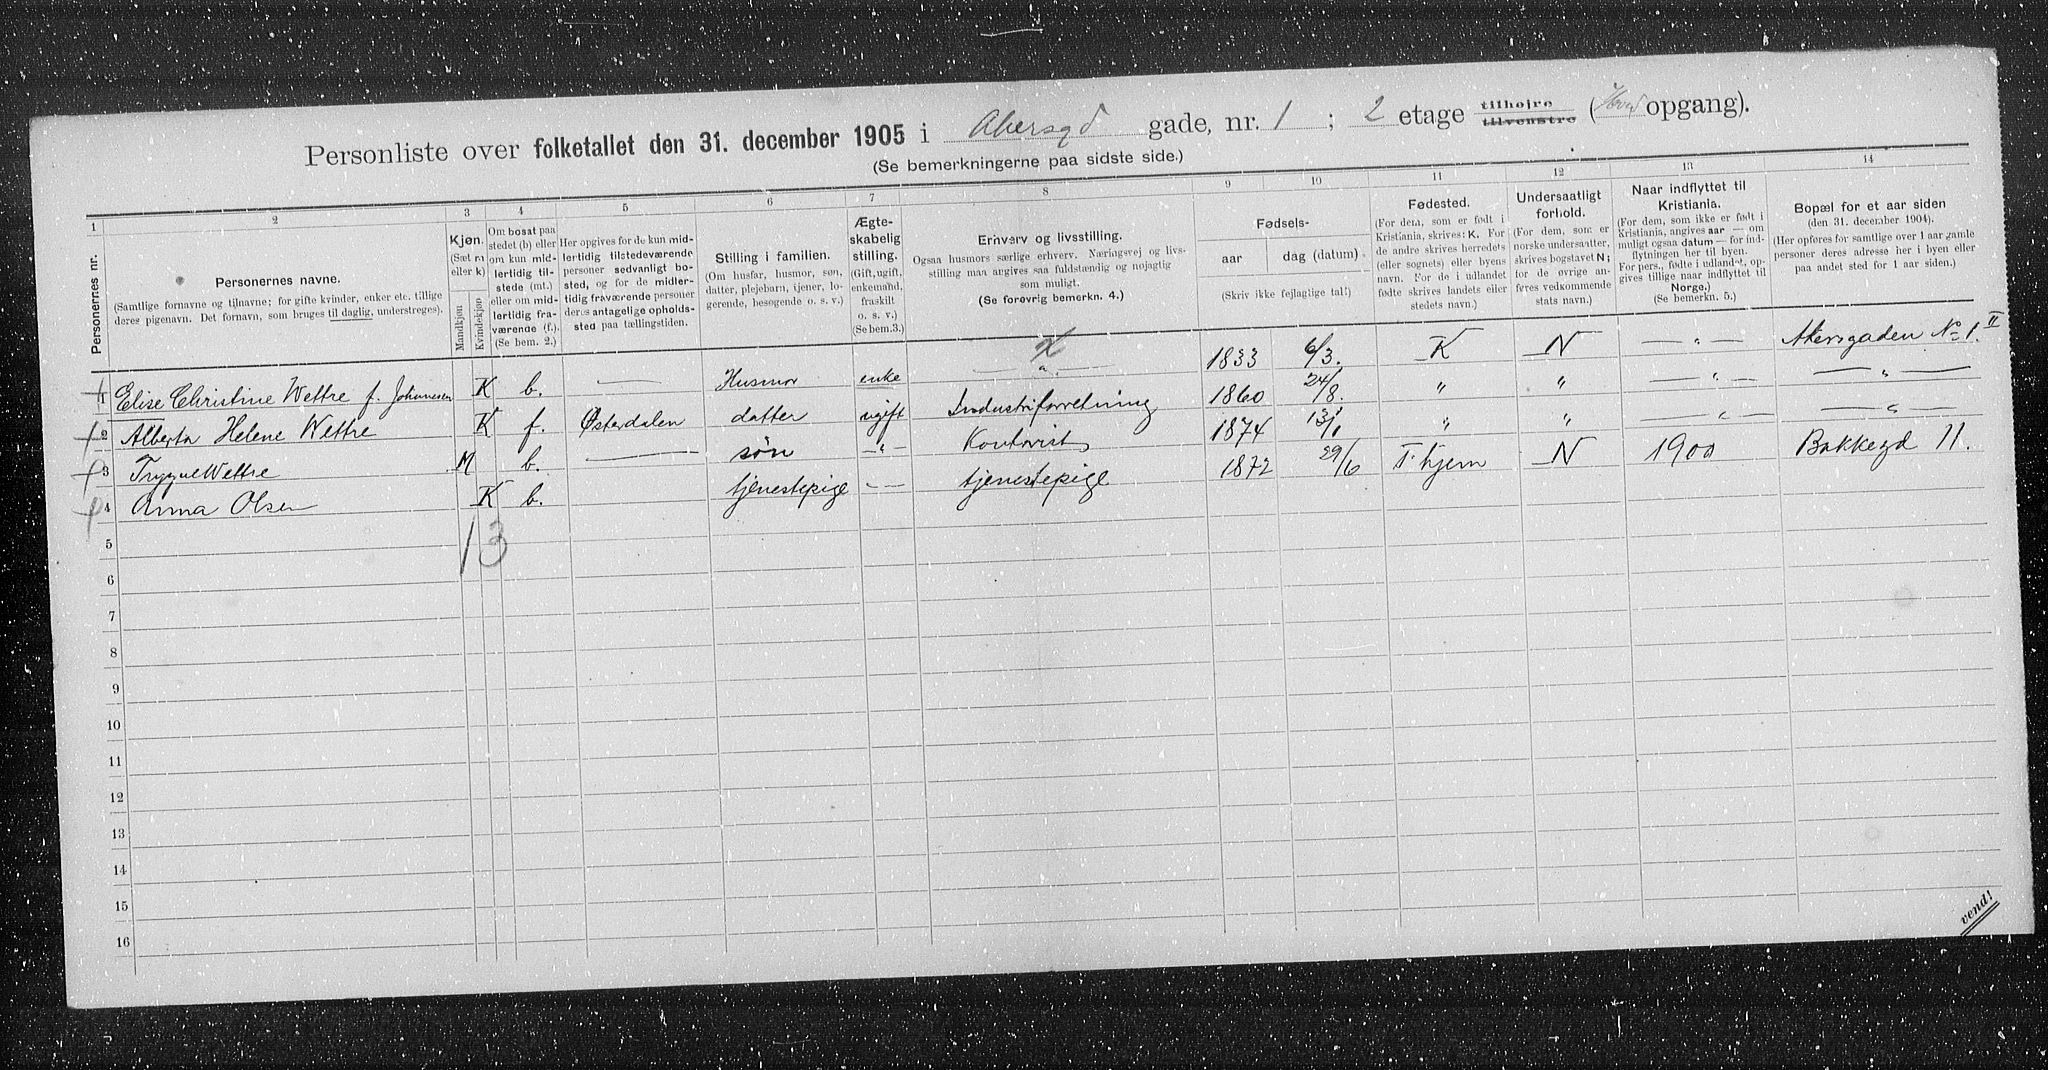 Personliste over folketallet den 31. december 1905 i Akersgd gade, nr. 1 ; 2 etage tilhøjre tilvenstre (Hoved opgang).
(Se bemerkningerne paa sidste side.)
1 2 3 4 5 6 7 8 9 10 11 12 13 14
Personernes nr.
Personernes navne.
(Samtlige fornavne og tilnavne; for gifte kvinder, enker etc. tillige
deres pigenavn. Det fornavn, som bruges til daglig, understreges).
Kjøn.
(Sæt m
eller k)
Mandkjøn
Kvindekjøn
Om bosat paa
stedet (b) eller
om kun mid-
lertidig til-
stede (mt.)
eller om mid-
lertidig fra-
værende (f.).
(Se bem. 2.)
Her opgives for de kun mid-
lertidig tilstedeværende
personer sedvanligt bo-
sted, og for de midler-
tidig fraværende personer
deres antagelige opholds-
sted paa tællingstiden.
Stilling i familien.
(Om husfar, husmor, søn,
datter, plejebarn, tjener, lo-
gerende, besøgende o. s. v.)
Ægte-
skabelig
stilling.
(Gift, ugift,
enkemand,
fraskilt
o. s. v.)
(Se bem. 3.)
Erhverv og livsstilling.
Ogsaa husmors særlige erhverv. Næringsvej og livs-
stilling maa angives saa fuldstændig og nøjagtig
som muligt.
(Se forøvrig bemerkn. 4.)
Fødsels-
aar
dag (datum).
(Skriv ikke fejlagtige tal!)
Fødested.
(For dem, som er født i
Kristiania, skrives: K. For
de andre skrives herredets
(eller sognets) eller byens
navn. For de i udlandet
fødte skrives landets eller
stedets navn.)
Undersaatligt
forhold.
(For dem, som er
norske undersaatter,
skrives bogstavet N;
for de øvrige an-
føres vedkommende
stats navn.)
Naar indflyttet til
Kristiania.
(For dem, som ikke er født i
Kristiania, angives aar — om
muligt ogsaa datum — for ind-
flytningen her til byen.
For pers., født i udlandet, op-
gives tillige naar indflyttet til
Norge.)
(Se bemerkn. 5.)
Bopæl for et aar siden
(den 31. december 1904).
(Her opføres for samtlige over 1 aar gamle
personer deres adresse her i byen eller
paa andet sted for 1 aar siden.)
1 Elise Christine Wettre f. Johannesen K b. — Husmor enke — " — 1833 6/3. K N — " — Akersgaden No 1. II
2 Alberta Helene Wettre K f. Østerdalen datter ugift Industriforretning 1860 24/8. " " — " — — " —
3 Trygve Wettre M b. — søn — " — Kontorist 1874 13/1 " " — " — — " —
4 Anna Olsen K b. tjenestepige — " — tjenestepige 1872 29/6 Thjem N 1900 Bakkegd 11.
13
5
6
7
8
9
10
11
12
13
14
15
16
vend!